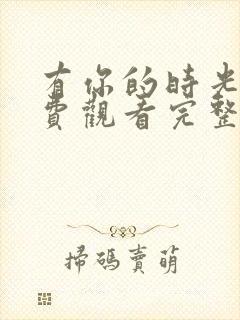 有你的時光
費觀看完整
掃碼賣萌